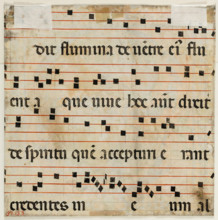 dit flumina de uẽtre eiꝰ flu
ent a que uiue hoc aũt dixit
de spiritu quẽ accepturi e rant
credentes in e um al